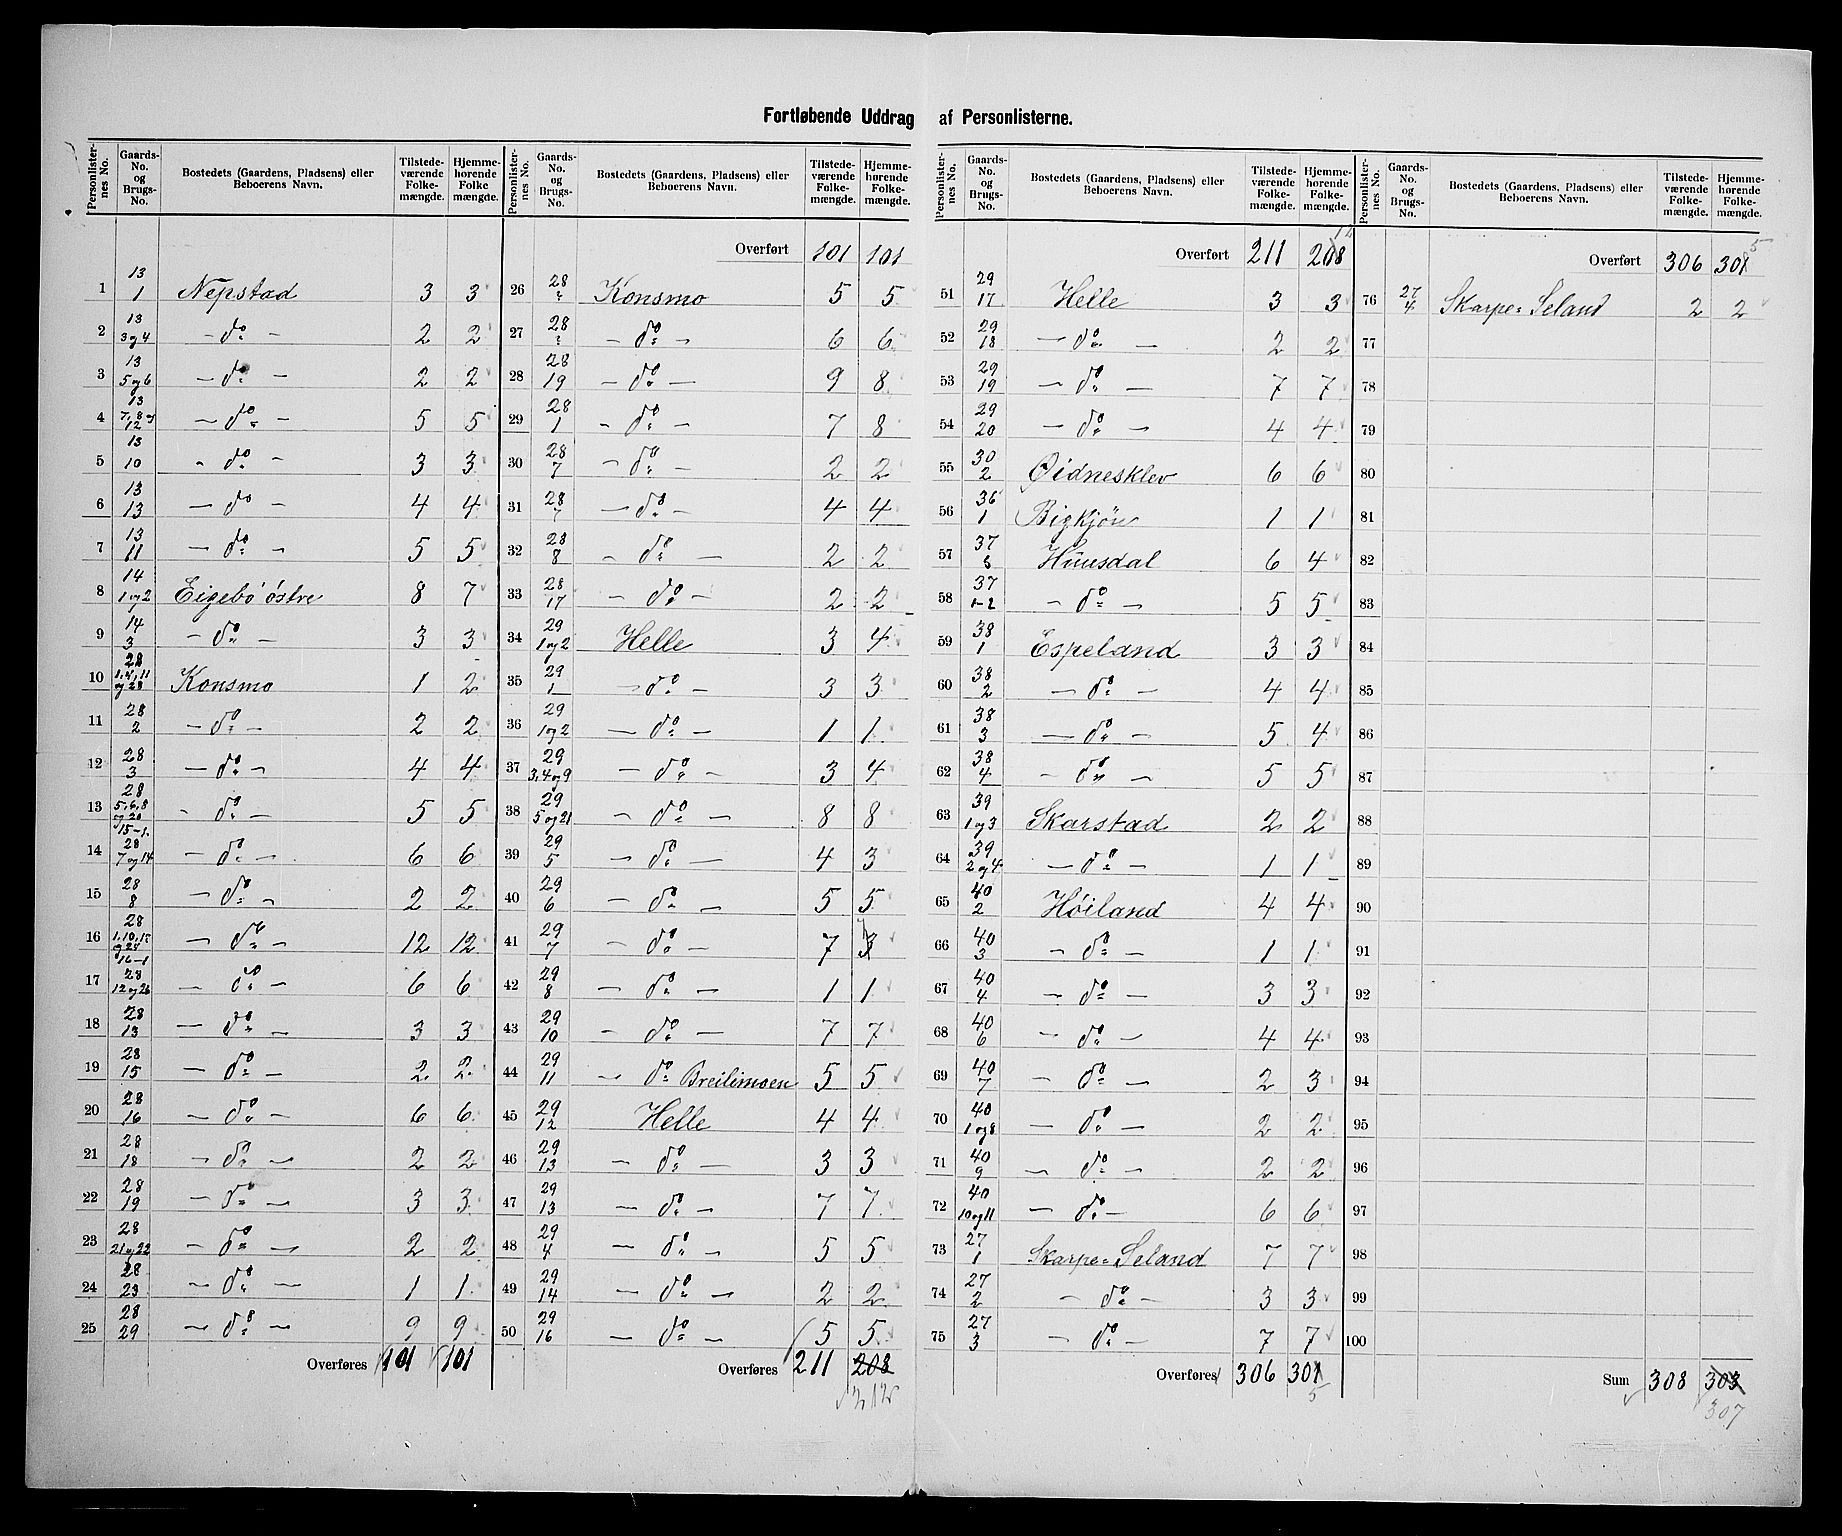 Fortløbende Uddrag af Personlisterne.
Personlisternes No. | Gaards-No. og Brugs-No. | Bostedets (Gaardens, Pladsens) eller Beboerens Navn. | Tilstedeværende Folkemængde. | Hjemmehørende Folkemængde.
1 | 13 1 | Nepstad | 3 | 3
2 | 13 3 og 4 | — do — | 2 | 2
3 | 13 5 og 6 | — do — | 2 | 2
4 | 13 7, 8 og 12 | — do — | 5 | 5
5 | 13 10 | — do — | 3 | 3
6 | 13 13 | — do — | 4 | 4
7 | 13 11 | — do — | 5 | 5
8 | 14 1 og 2 | Eigebø østre | 8 | 7
9 | 14 3 | — do — | 3 | 3
10 | 28 1, 4, 11 og 28 | Konsmo | 1 | 2
11 | 28 2 | — do — | 2 | 2
12 | 28 3 | — do — | 4 | 4
13 | 28 5, 6, 8 og 20 15-1. | — do — | 5 | 5
14 | 28 7 og 14 | — do — | 6 | 6
15 | 28 8 | — do — | 2 | 2
16 | 28 1, 10, | — do — | 12 | 12
17 | 28 12 og 26 | — do — | 6 | 6
18 | 28 13 | — do — | 3 | 3
19 | 28 15 | — do — | 2 | 2
20 | 28 16 | — do — | 6 | 6
21 | 28 18 | — do — | 2 | 2
22 | 28 19 | — do — | 3 | 3
23 | 28 21 og 22 | — do — | 2 | 2
24 | 28 23 | — do — | 1 | 1
25 | 28 29 | — do — | 9 | 9
Overføres 101 101
Personlisternes No. | Gaards-No. og Brugs-No. | Bostedets (Gaardens, Pladsens) eller Beboerens Navn. | Tilstedeværende Folkemængde. | Hjemmehørende Folkemængde.
Overført 101 101
26 | 28 ? | Konsmo | 5 | 5
27 | 28 ? | — do — | 6 | 6
28 | 28 19 | — do — | 9 | 8
29 | 28 1 | — do — | 7 | 8
30 | 28 7 | — do — | 2 | 2
31 | 28 7 | — do — | 4 | 4
32 | 28 8 | — do — | 2 | 2
33 | 28 17 | — do — | 2 | 2
34 | 29 1 og 2 | Helle | 3 | 4
35 | 29 1 | — do — | 3 | 3
36 | 29 1 og 2 | — do — | 1 | 1
37 | 29 3, 4 og 9 | — do — | 3 | 4
38 | 29 5 og 21 | — do — | 8 | 8
39 | 29 5 | — do — | 4 | 3
40 | 29 6 | — do — | 5 | 5
41 | 29 7 | — do — | 7 | 3 7
42 | 29 8 | — do — | 1 | 1
43 | 29 10 | — do — | 7 | 7
44 | 29 11 | — do Breilimoen | 5 | 5
45 | 29 12 | Helle | 4 | 4
46 | 29 13 | — do — | 3 | 3
47 | 29 13 | — do — | 7 | 7
48 | 29 4 | — do — | 5 | 5
49 | 29 14 | — do — | 2 | 2
50 | 29 16 | — do — | 5 | 5
Overføres 211 208
212
Personlisternes No. | Gaards-No. og Brugs-No. | Bostedets (Gaardens, Pladsens) eller Beboerens Navn. | Tilstedeværende Folkemængde. | Hjemmehørende Folkemængde.
Overført 211 208 12
51 | 29 17 | Helle | 3 | 3
52 | 29 18 | — do — | 2 | 2
53 | 29 19 | — do — | 7 | 7
54 | 29 20 | — do — | 4 | 4
55 | 30 2 | Øidnesklev | 6 | 6
56 | 36 1 | Bigkjøn | 1 | 1
57 | 37 3 | Huusdal | 6 | 4
58 | 37 1-2 | — do — | 5 | 5
59 | 38 1 | Espeland | 3 | 3
60 | 38 2 | — do — | 4 | 4
61 | 38 3 | — do — | 5 | 4
62 | 38 4 | — do — | 5 | 5
63 | 39 1 og 3 | Skarstad | 2 | 2
64 | 39 2 og 4 | — do — | 1 | 1
65 | 40 2 | Høiland | 4 | 4
66 | 40 3 | — do — | 1 | 1
67 | 40 4 | — do — | 3 | 3
68 | 40 6 | — do — | 4 | 4
69 | 40 7 | — do — | 2 | 3
70 | 40 1 og 8 | — do — | 2 | 2
71 | 40 9 | — do — | 2 | 2
72 | 40 10 og 11 | — do — | 6 | 6
73 | 27 1 | Skarpe=Seland | 7 | 7
74 | 27 2 | — do — | 3 | 3
75 | 27 3 | — do — | 7 | 7
Overføres 306 301
5
Personlisternes No. | Gaards-No. og Brugs-No. | Bostedets (Gaardens, Pladsens) eller Beboerens Navn. | Tilstedeværende Folkemængde. | Hjemmehørende Folkemængde.
Overført 306 301 5
76 | 27 4 | Skarpe=Seland | 2 | 2
77
78
79
80
81
82
83
84
85
86
87
88
89
90
91
92
93
94
95
96
97
98
99
100
Sum 308 303
307